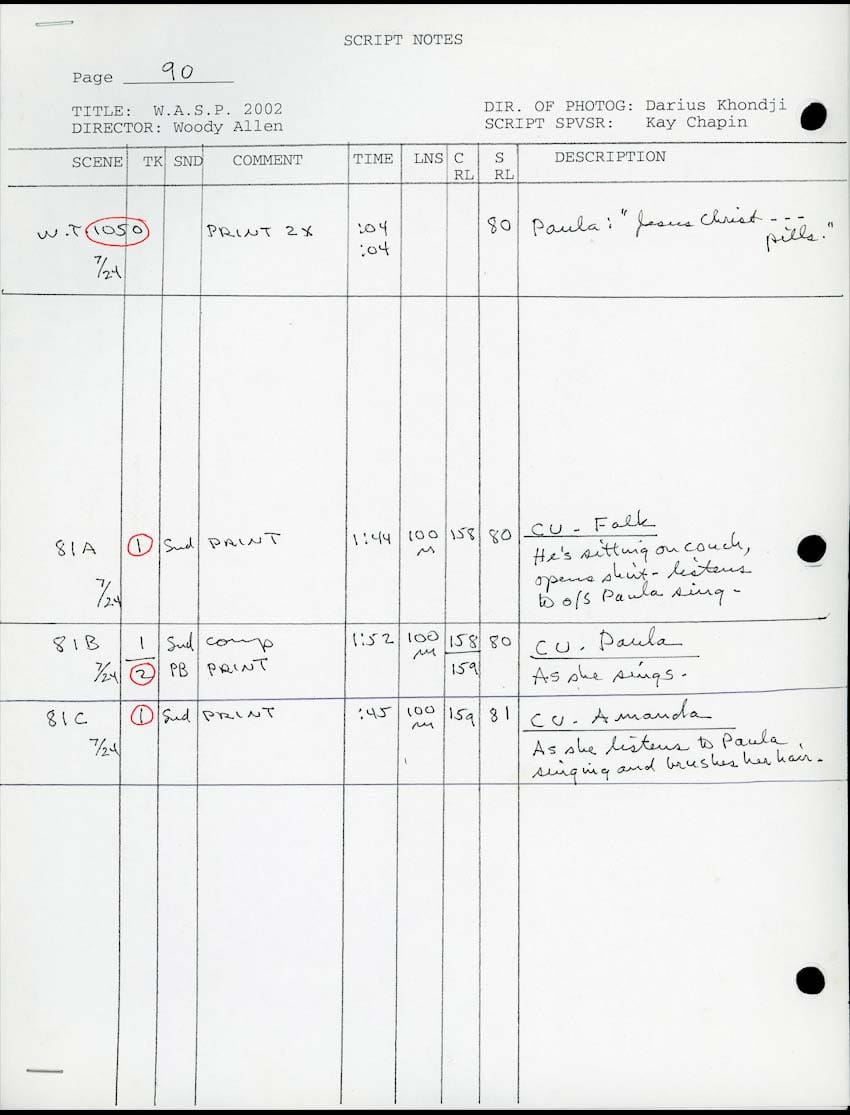 SCRIPT NOTES
Page 90
TITLE: W.A.S.P. 2002
DIR. OF PHOTOG: Darius Khondji
DIRECTOR: Woody Allen
SCRIPT SPVSR: Kay Chapin
SCENE TK SND COMMENT TIME LNS C RL S RL DESCRIPTION
W.T. 1050 PRINT 2X :04 80 Paula: "Jesus Christ ---
7/24 :04 pills."
81A 1 Snd PRINT 1:44 100 M 158 80 CU - Falk
He's sitting on couch,
opens shirt - listens
7/24 to o/s Paula sing -
81B 1 Snd comp 1:52 100 M 158 80 CU. Paula
7/24 2 PB PRINT 159 As she sings.
81C 1 Snd PRINT :45 100 M 159 81 CU. Amanda
7/24 As she listens to Paula
singing and brushes her hair.